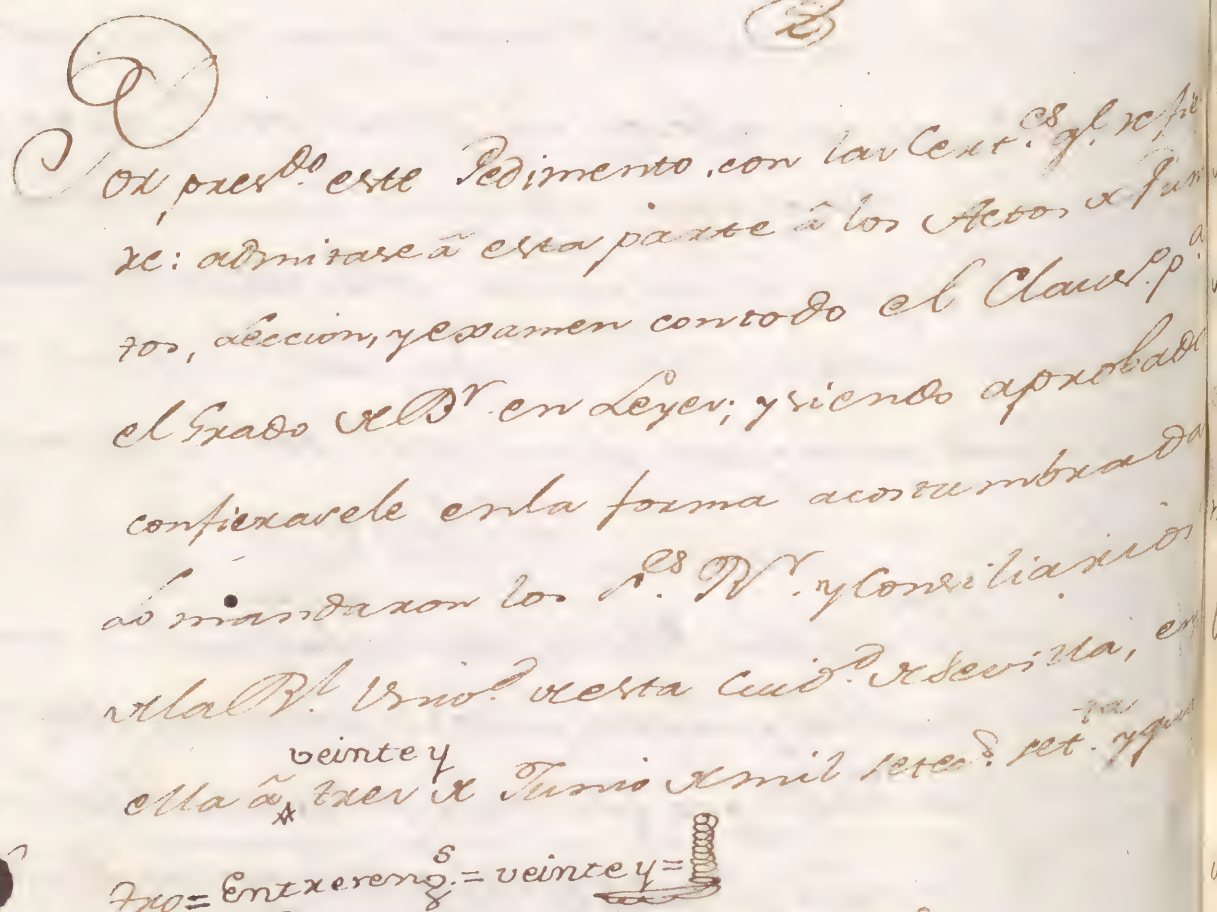 Por pres.do este Pedimento, con las Cert.es q.e refie
re: admitase â esta parte â los Actos de Pun
tos, Leccion, y examen con todo el Claus.o p.a
el Grado de B.r en Leyes; y siendo aprobado
confierasele en la forma acostumbrada
asi mandaron los S.res R.r y Consiliarios
de la R.l Univ.d de esta Ciud.d de Sevilla, en
veinte y
ella â tres de Junio de mil setec.s set.ta y qua
tro = Entrereng.s = veinte y =